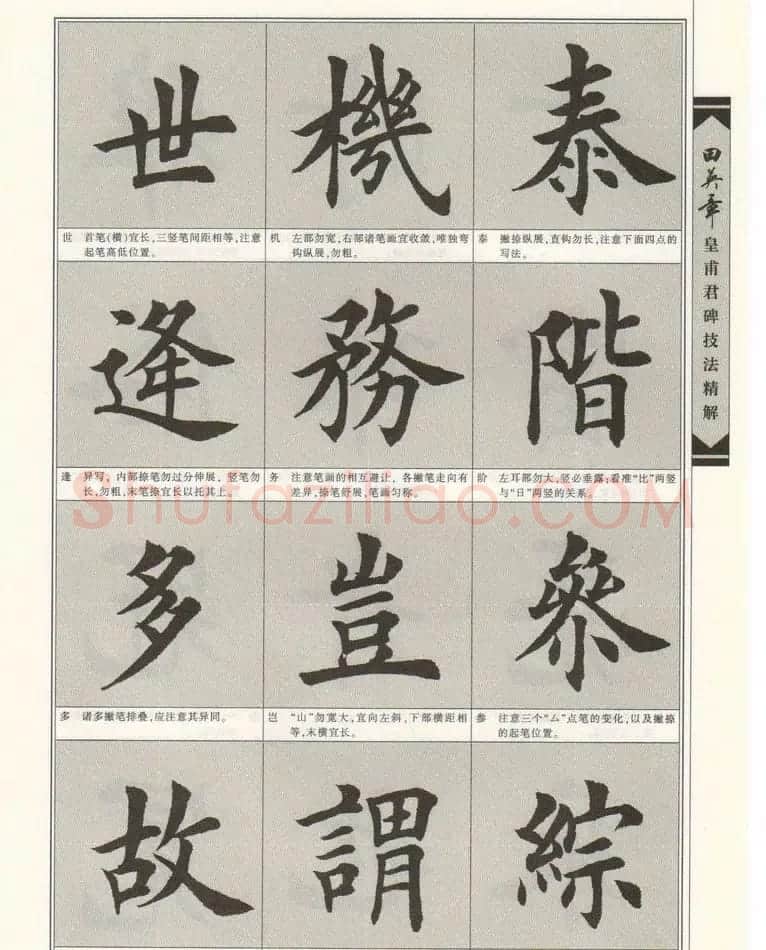 世 機 泰
世 首笔(横)宜长,三竖笔间距相等,注意
起笔高低位置。
机 左部勿宽,右部诸笔画宜收敛,唯独弯
钩纵展,勿粗。
泰 撇捺纵展,直钩勿长,注意下面四点的
写法。
逢 務 階
逢 异写,内部捺笔勿过分伸展,竖笔勿
长,勿粗,末笔捺宜长以托其上。
务 注意笔画的相互避让,各撇笔走向有
差异,捺笔舒展,笔画匀称。
阶 左耳部勿大,竖必垂露;看准“比”两竖
与“日”两竖的关系。
多 豈 參
多 诸多撇笔排叠,应注意其异同。
岂 “山”勿宽大,宜向左斜,下部横距相
等,末横宜长。
参 注意三个“厶”点笔的变化,以及撇捺
的起笔位置。
故 謂 綜
田英章
皇甫君碑技法精解
Shufaziliao.COM